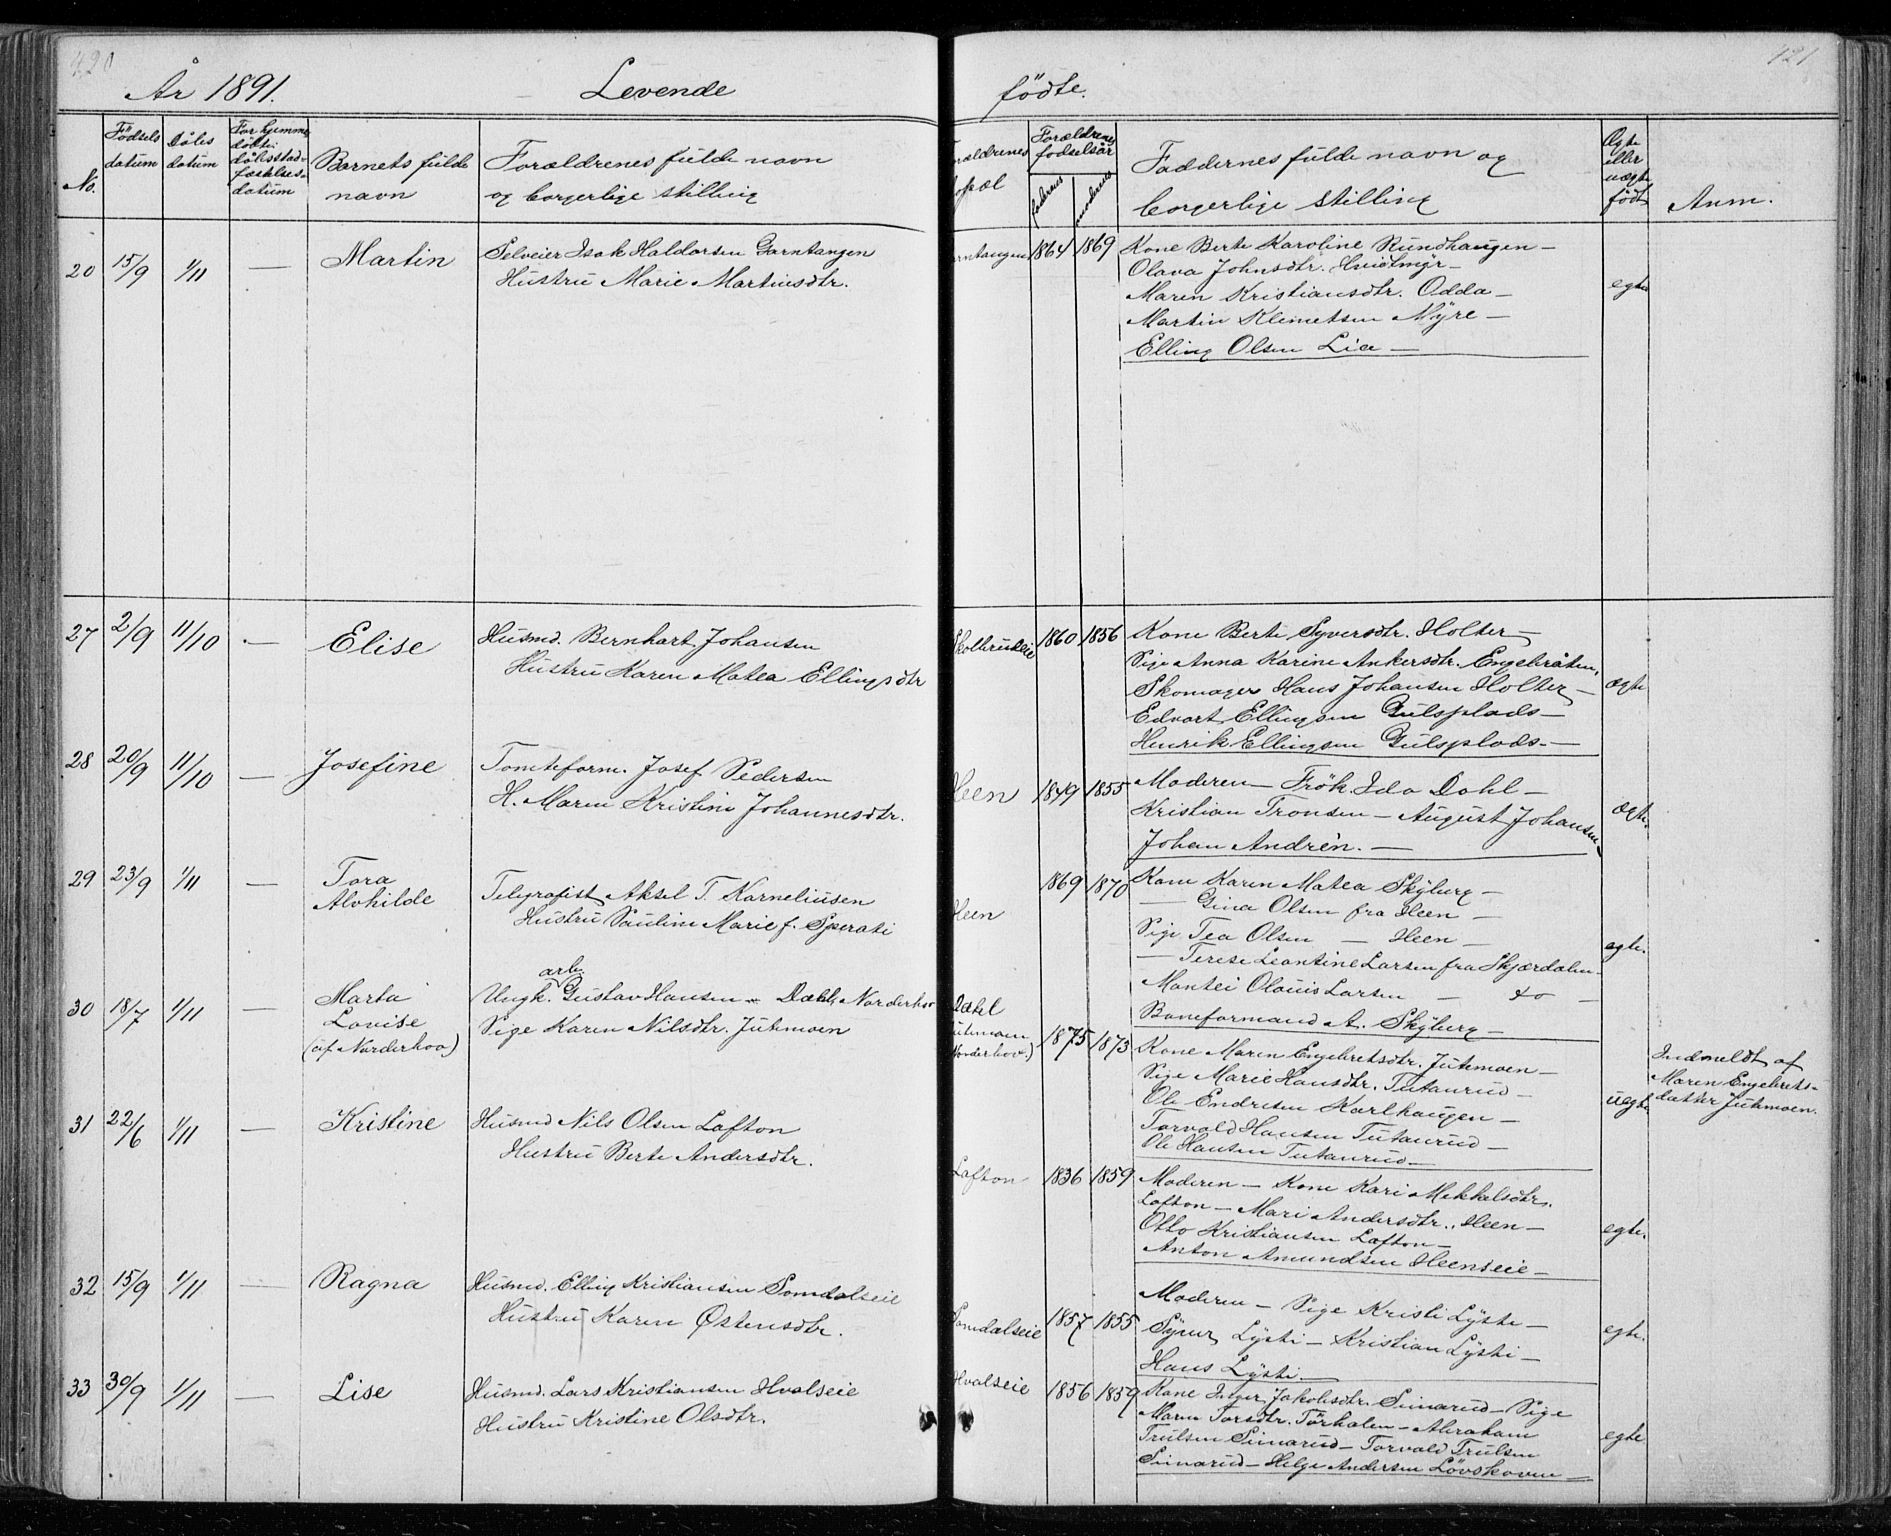 420
År 1891.
Levende
No.
Fødsels datum
Dåbs datum
For hjemmedøbte: dåbsstadfæstelses-datum
Barnets fulde navn
Forældrenes fulde navn og borgerlige stilling
20 15/9 1/11 — Martin
Selveier Isak Haldorsen Garntangen
Hustru Marie Martinsdtr.
27 2/9 11/10 — Elise
Husmd. Bernhart Johansen
Hustru Karen Matea Ellingsdtr
28 20/9 11/10 — Josefine
Tomteform. Josef Pedersen
H. Maren Kristine Johannesdtr.
29 23/9 1/11 — Tora
Alvhilde
Telegrafist Aksel T. Karneliusen
Hustru Pauline Marie f. Sperati
30 18/7 1/11 — Marta
Lovise
(af Norderhov)
arb.
Ungk. Gustav Hansen Dæhl, Norderhov
Pige Karen Nilsdtr. Juhmoen
31 22/6 1/11 — Kristine
Husmd Nils Olsen Lofton
Hustru Berte Andersdtr.
32 15/9 1/11 — Ragna
Husmd. Elling Kristiansen Somdalseie
Hustru Karen Østensdtr.
33 30/9 1/11 — Lise
Husmd. Lars Kristiansen Hvalseie
Hustru Kristine Olsdtr.
421
fødte.
Forældrenes fødselsår
faderens
moderens
Faddernes fulde navn og borgerlige stilling
Ægte eller uægte født
Anm.
1864 1869
Kone Berte Karoline Rundhaugen —
Olava Johnsdtr. Hvidtmyr —
Maren Kristiansdtr. Odda —
Martin Klemetsen Myre —
Elling Olsen Lia —
egte
1860 1856
Kone Berte Syversdtr. Holter —
Pige Anna Karine Ankersdtr. Engebråten,
Skomager Hans Johansen Holter —
Edvart Ellingsen Gulsplads —
Henrik Ellingsen Gulsplads. —
ægte
Heen 1849 1855
Moderen — Frøk. Ida Dahl —
Kristian Tronsen — August Johansen
Johan Andrèn. —
ægte.
Heen 1869 1870
Kone Karen Matea Skyberg —
— Gina Olsen fra Heen —
Pige Tea Olsen — Heen —
— Terese Leontine Larsen fra Skjærdalen
Montei Olouis Larsen — do —
Baneformand A. Skyberg —
egte.
Dæhl
Juhmoen
Norderhov) 1875 1873
Kone Maren Engebretsdtr. Juhmoen —
Pige Marie Hansdtr. Tutanrud —
Ole Endresen Karlhaugen —
Torvald Hansen Tutanrud —
Ole Hansen Tutanrud —
uegte
Indmeldt af
Maren Engebrets-
datter Juhmoen.
Lofton 1836 1859
Moderen — Kone Kari Mikkelsdtr.
Lofton — Mari Andersdtr. Heen —
Otto Kristiansen Lofton —
Anton Amundsen Heenseie —
egte.
Somdalseie 1857 1855
Moderen — Pige Kristi Lyste —
Syver Lysti — Kristian Lysti —
Hans Lysti. —
egte.
Hvalseie 1856 1859
Kone Inger Jakobsdtr. Simarud — Pige
Maren Torsdtr. Tørhalen — Abraham
Trulsen Simarud — Torvald Trulsen
Simarud — Helge Andersen Løvskoven —
egte